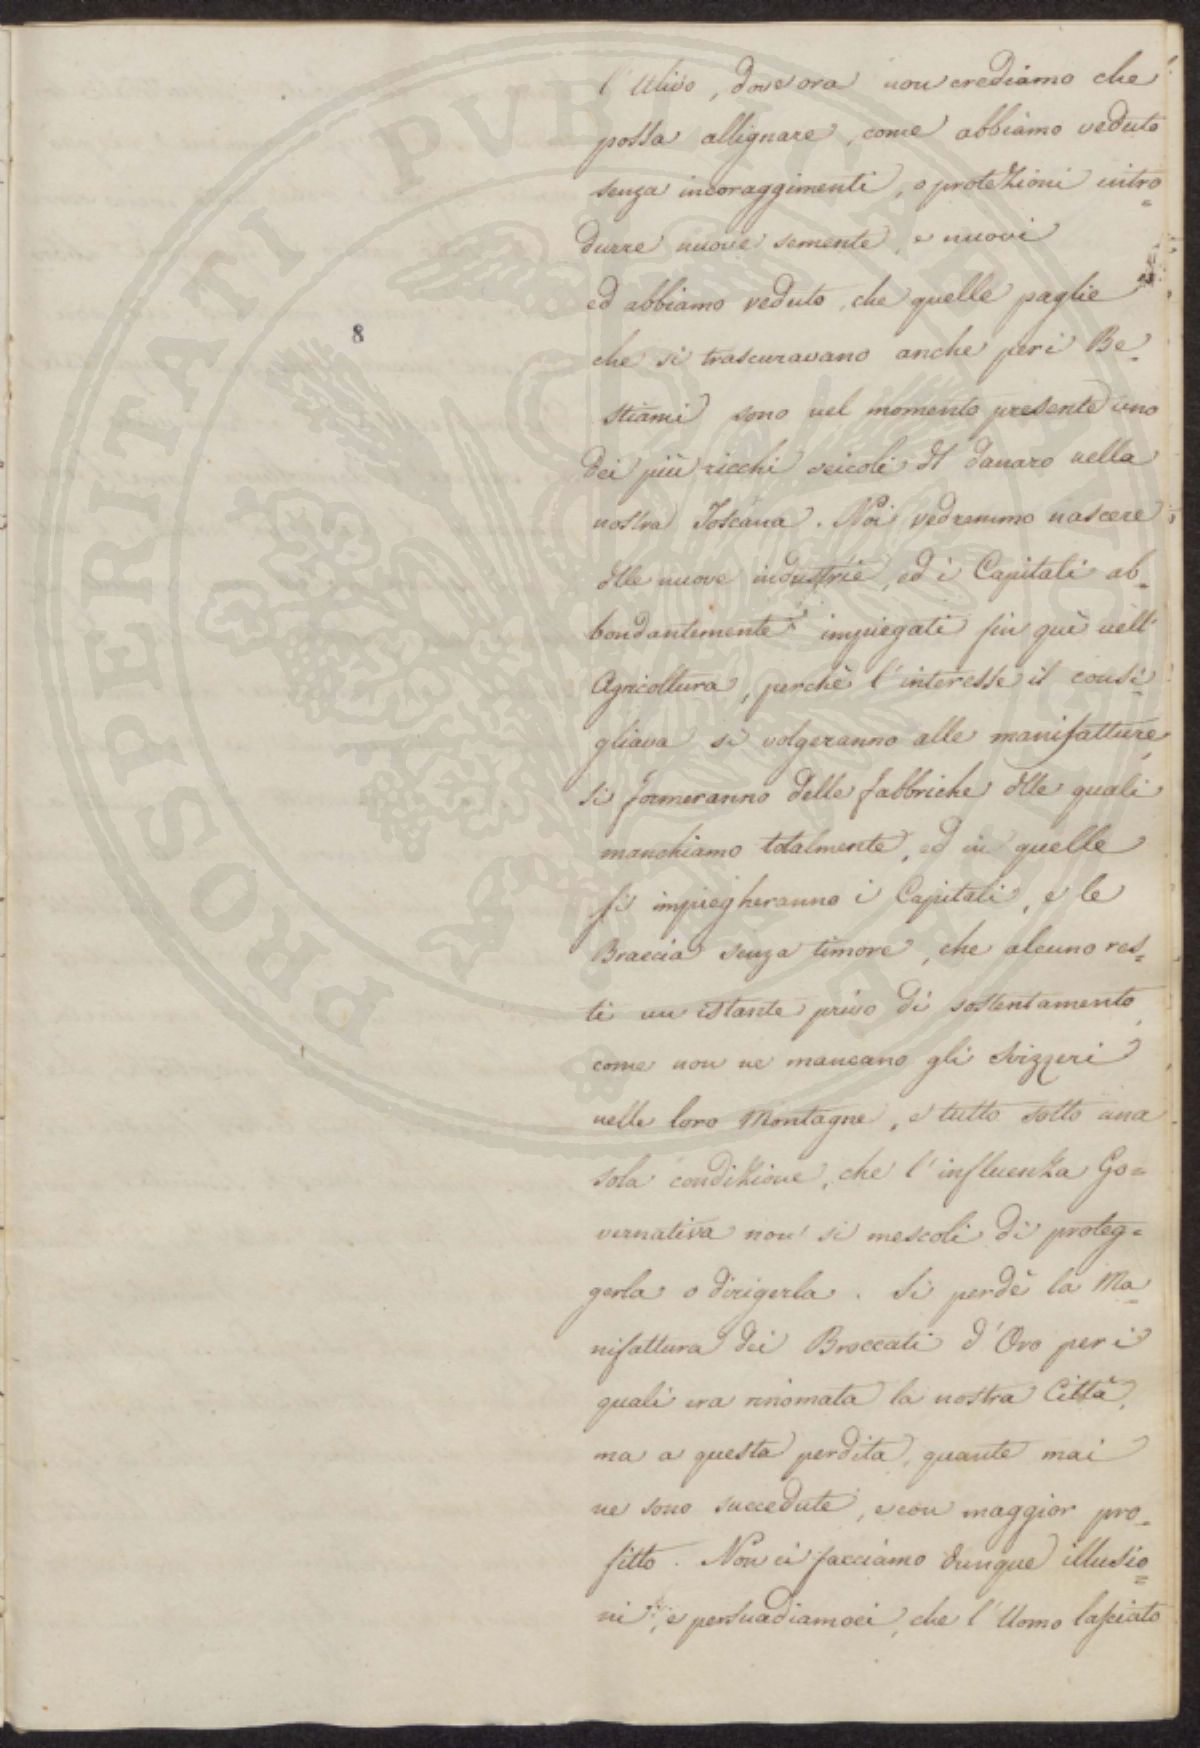 PROSPERITATI PVBLICAE AVGENDAE
8
l'Ulivo, dove ora non crediamo che
possa allignare, come abbiamo veduto
senza incoraggimenti, o protezioni intro=
durre nuove semente, e nuovi
ed abbiamo veduto, che quelle paglie
che si trascuravano anche per i Be=
stiami sono nel momento presente uno
dei più ricchi veicoli di danaro nella
nostra Toscana. Noi vedremmo nascere
delle nuove industrie, ed i Capitali ab=
bondantemente impiegati fin quì nell'
Agricoltura, perchè l'interesse il consi=
gliava si volgeranno alle manifatture,
si formeranno delle fabbriche delle quali
manchiamo totalmente, ed in quelle
si impiegheranno i Capitali, e le
Braccia senza timore, che alcuno res=
ti un istante privo di sostentamento,
come non ne mancano gli Svizzeri
nelle loro Montagne, e tutto sotto una
sola condizione, che l'influenza Go=
vernativa non si mescoli di proteg=
gerla o dirigerla. Si perdè la Ma=
nifattura dei Broccati d'Oro per i
quali era rinomata la nostra Città,
ma a questa perdita, quante mai
ne sono succedute, e con maggior pro=
fitto. Non ci facciamo dunque illusio=
ni, e persuadiamoci, che l'Uomo lasciato